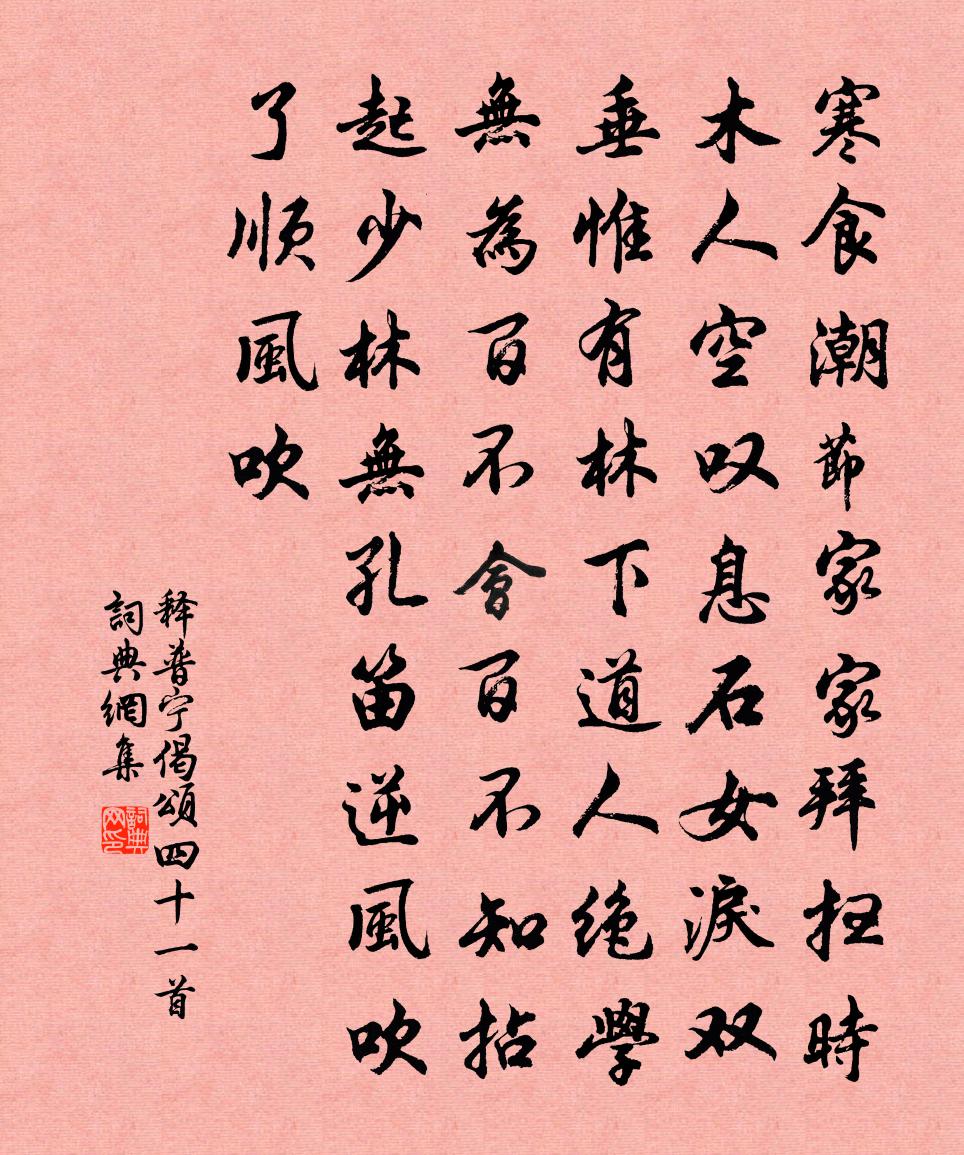 寒食潮節家家拜扫時
木人空叹息石女淚双
垂惟有林下道人绝學
無為百不會百不知拈
起少林無孔笛逆風吹
了順風吹
释普宁偈頌四十一首
詞典網集
詞典网印